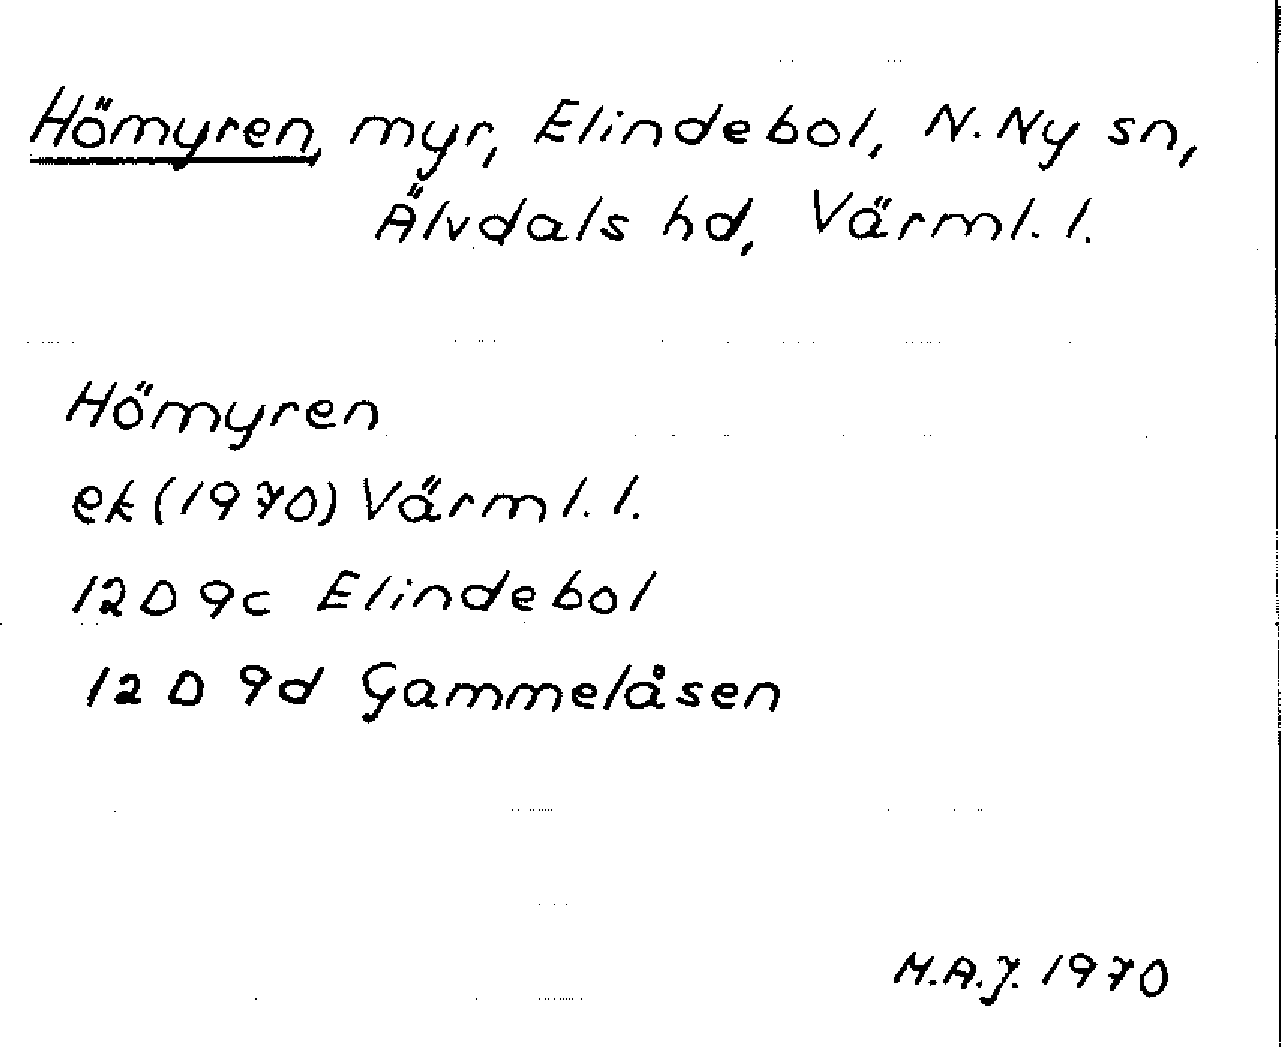 Hömyren, myr, Elindebol, N. Ny sn,
Älvdals hd, Värml. l.
Hömyren
ek (1970) Värml. l.
12 D 9c Elindebol
12 D 9d Gammelåsen
M.A.J. 1970